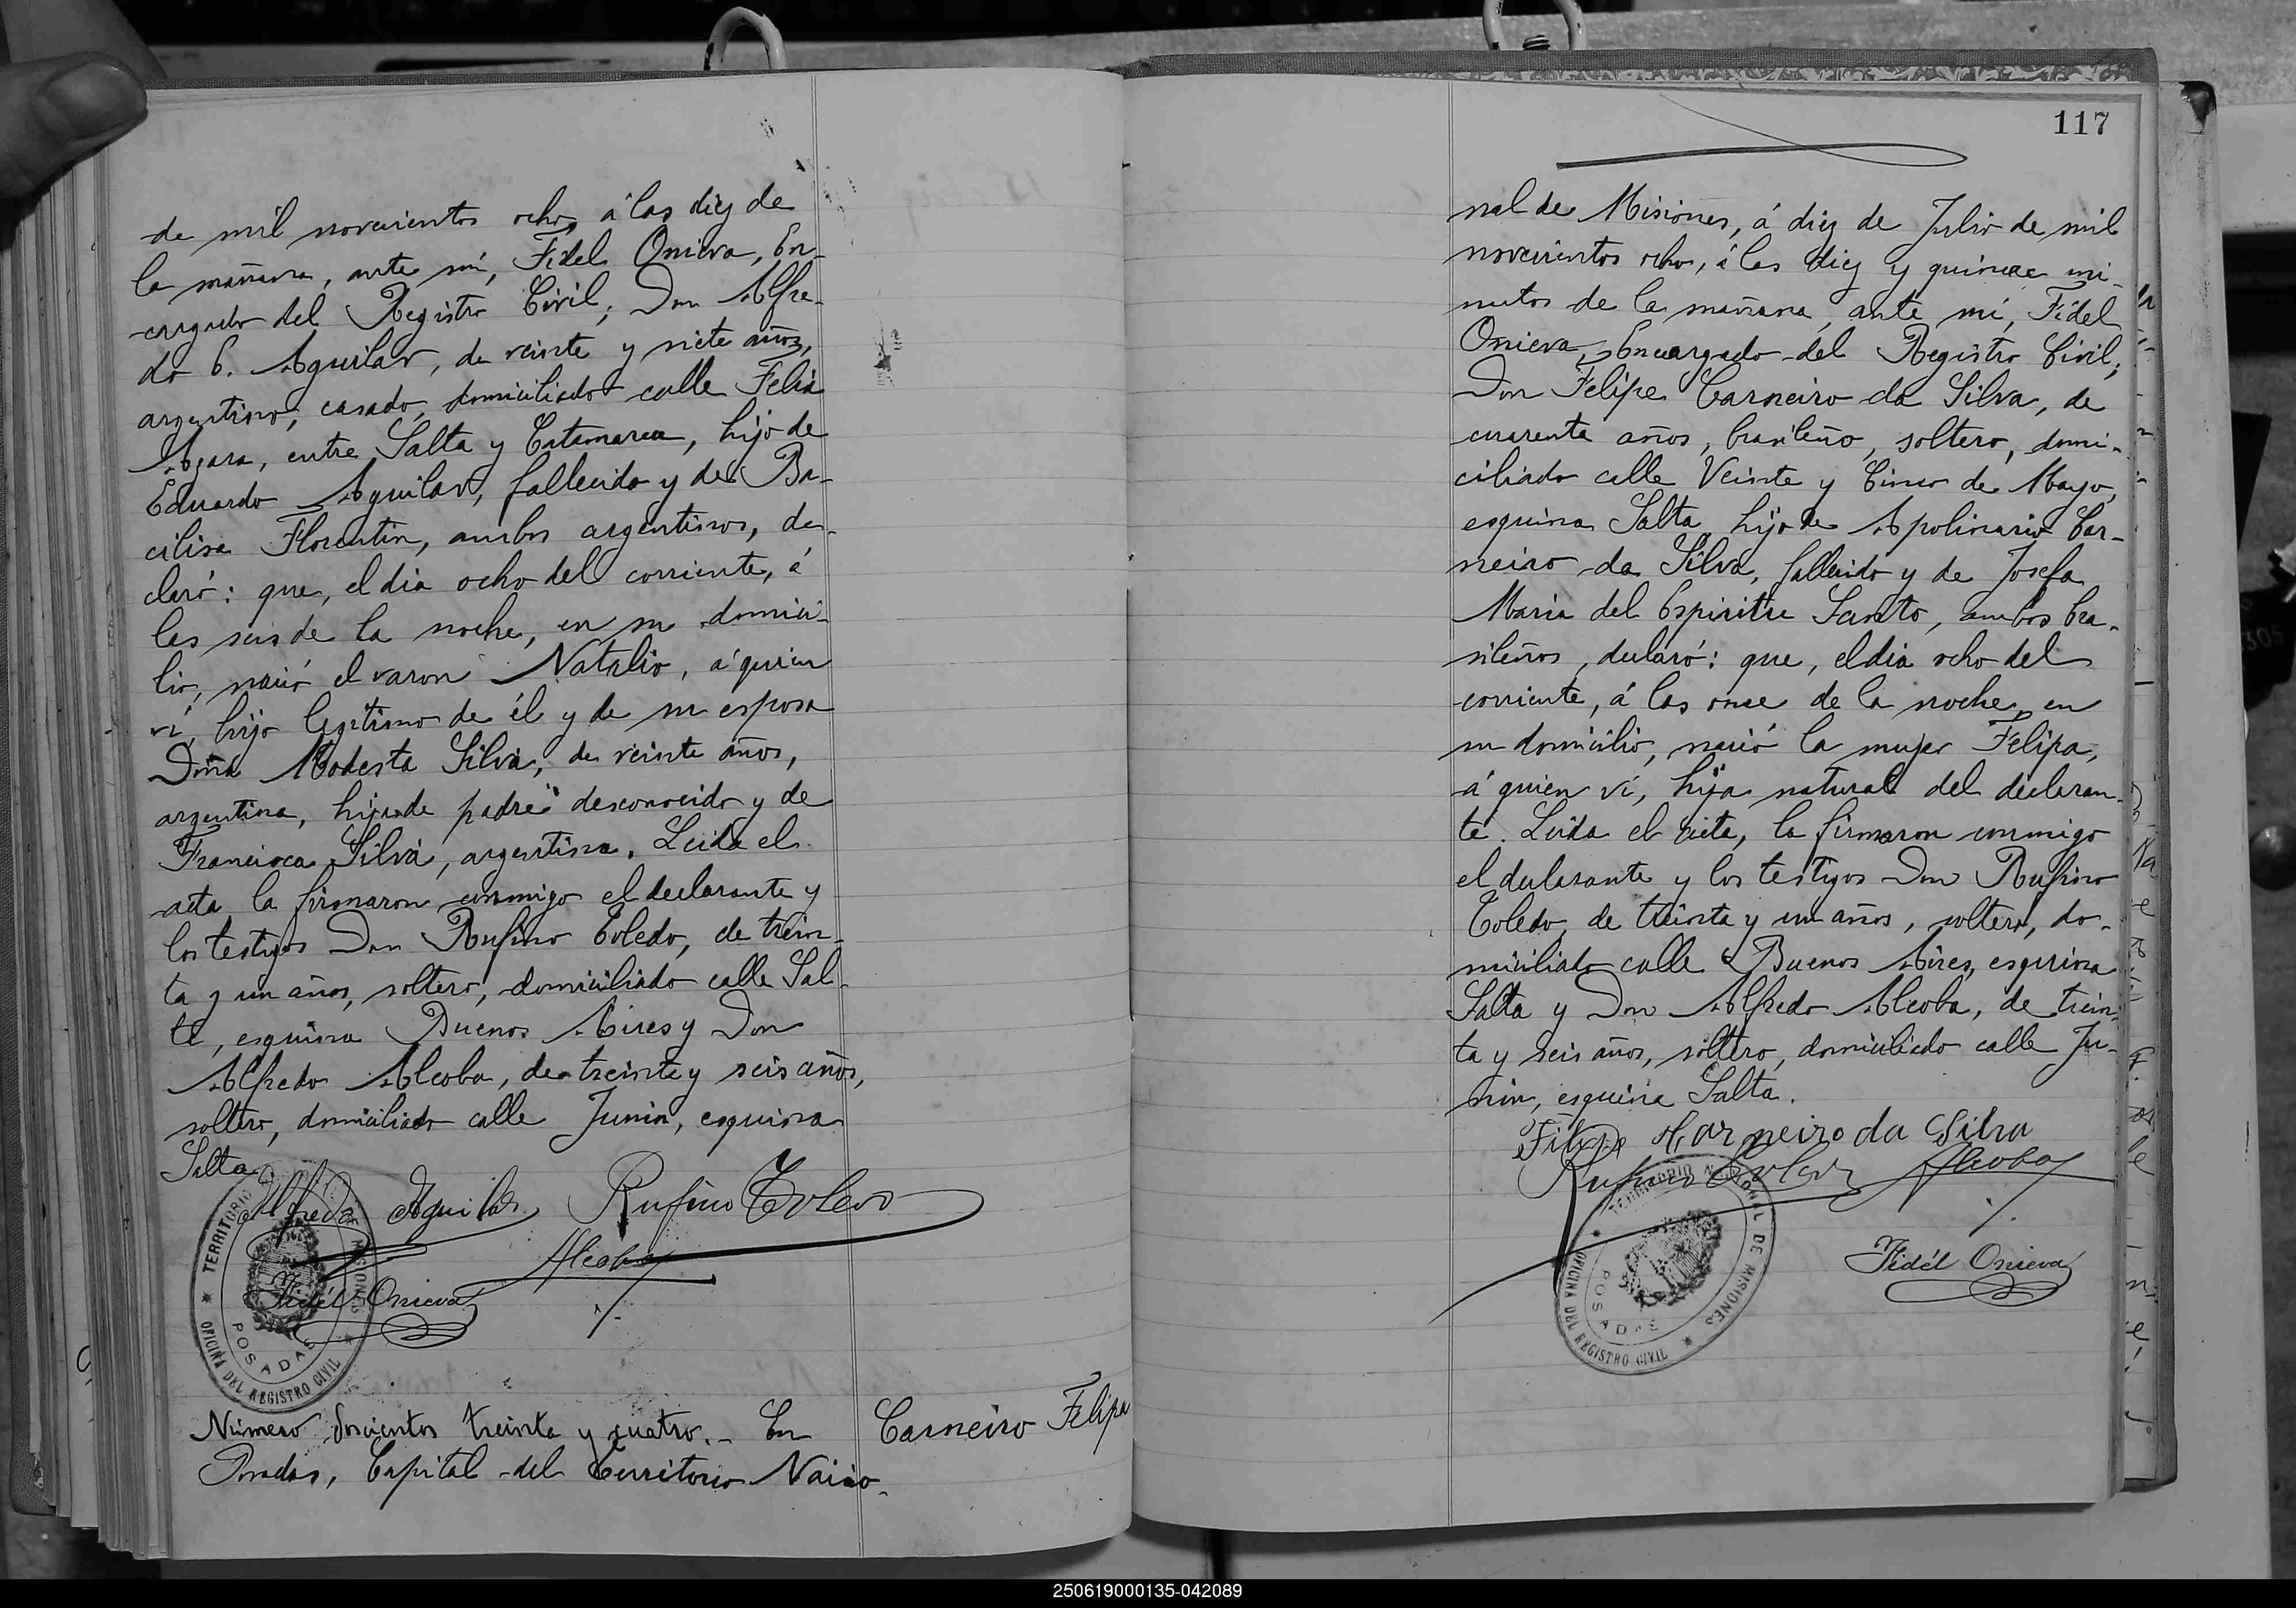 de mil novecientos ocho, á las diez de
la mañana, ante mí, Fidel Onieva, En-
cargado del Registro Civil; Don Alfre-
do E. Aguilar, de veinte y siete años,
argentino, casado, domiciliado calle Felix
Azara, entre Salta y Catamarca, hijo de
Eduardo Aguilar, fallecido y de Ba-
cilisa Florentin, ambos argentinos, de-
claró: que, el dia ocho del corriente, á
las seis de la noche, en su domici-
lio, nació el varon Natalio, á quien
ví, hijo legitimo de él y de su esposa
Doña Modesta Silva, de veinte años,
argentina, hija de padre desconocido y de
Francisca Silva, argentina. Leida el
acta, la firmaron conmigo el declarante y
los testigos Don Rufino Toledo, de trein-
ta y un años, soltero, domiciliado calle Sal-
ta, esquina Buenos Aires y Don
Alfredo Alcoba, de treinta y seis años,
soltero, domiciliado calle Junin, esquina
Salta.
Alfredo Aguilar Rufino Toledo
Alcoba
Fidél Onieva
TERRITORIO DE MISIONES
OFICINA DEL REGISTRO CIVIL
POSADAS
Número doscientos treinta y cuatro.- En
Posadas, Capital del Territorio Nacio-
Carneiro Felipa
117
nal de Misiones, á diez de Julio de mil
novecientos ocho, á las diez y quince mi-
nutos de la mañana, ante mí, Fidel
Onieva, Encargado del Registro Civil;
Don Felipe Carneiro da Silva, de
cuarenta años, brasileño, soltero, domi-
ciliado calle Veinte y Cinco de Mayo,
esquina Salta, hijo de Apolinario Car-
neiro da Silva, fallecido y de Josefa
Maria del Espiritu Santo, ambos bra-
sileños, declaró: que, el dia ocho del
corriente, á las once de la noche, en
su domicilio, nació la mujer Felipa,
á quien ví, hija natural del declaran-
te. Leida el acta, la firmaron conmigo
el declarante y los testigos Don Rufino
Toledo, de treinta y un años, soltero, do-
miciliado calle Buenos Aires, esquina
Salta y Don Alfredo Alcoba, de trein-
ta y seis años, soltero, domiciliado calle Ju-
nin, esquina Salta.
Carneiro da Silva
Rufino Toledo Alcoba
Fidél Onieva
TERRITORIO NACIONAL DE MISIONES
OFICINA DEL REGISTRO CIVIL
POSADAS
250619000135-042089